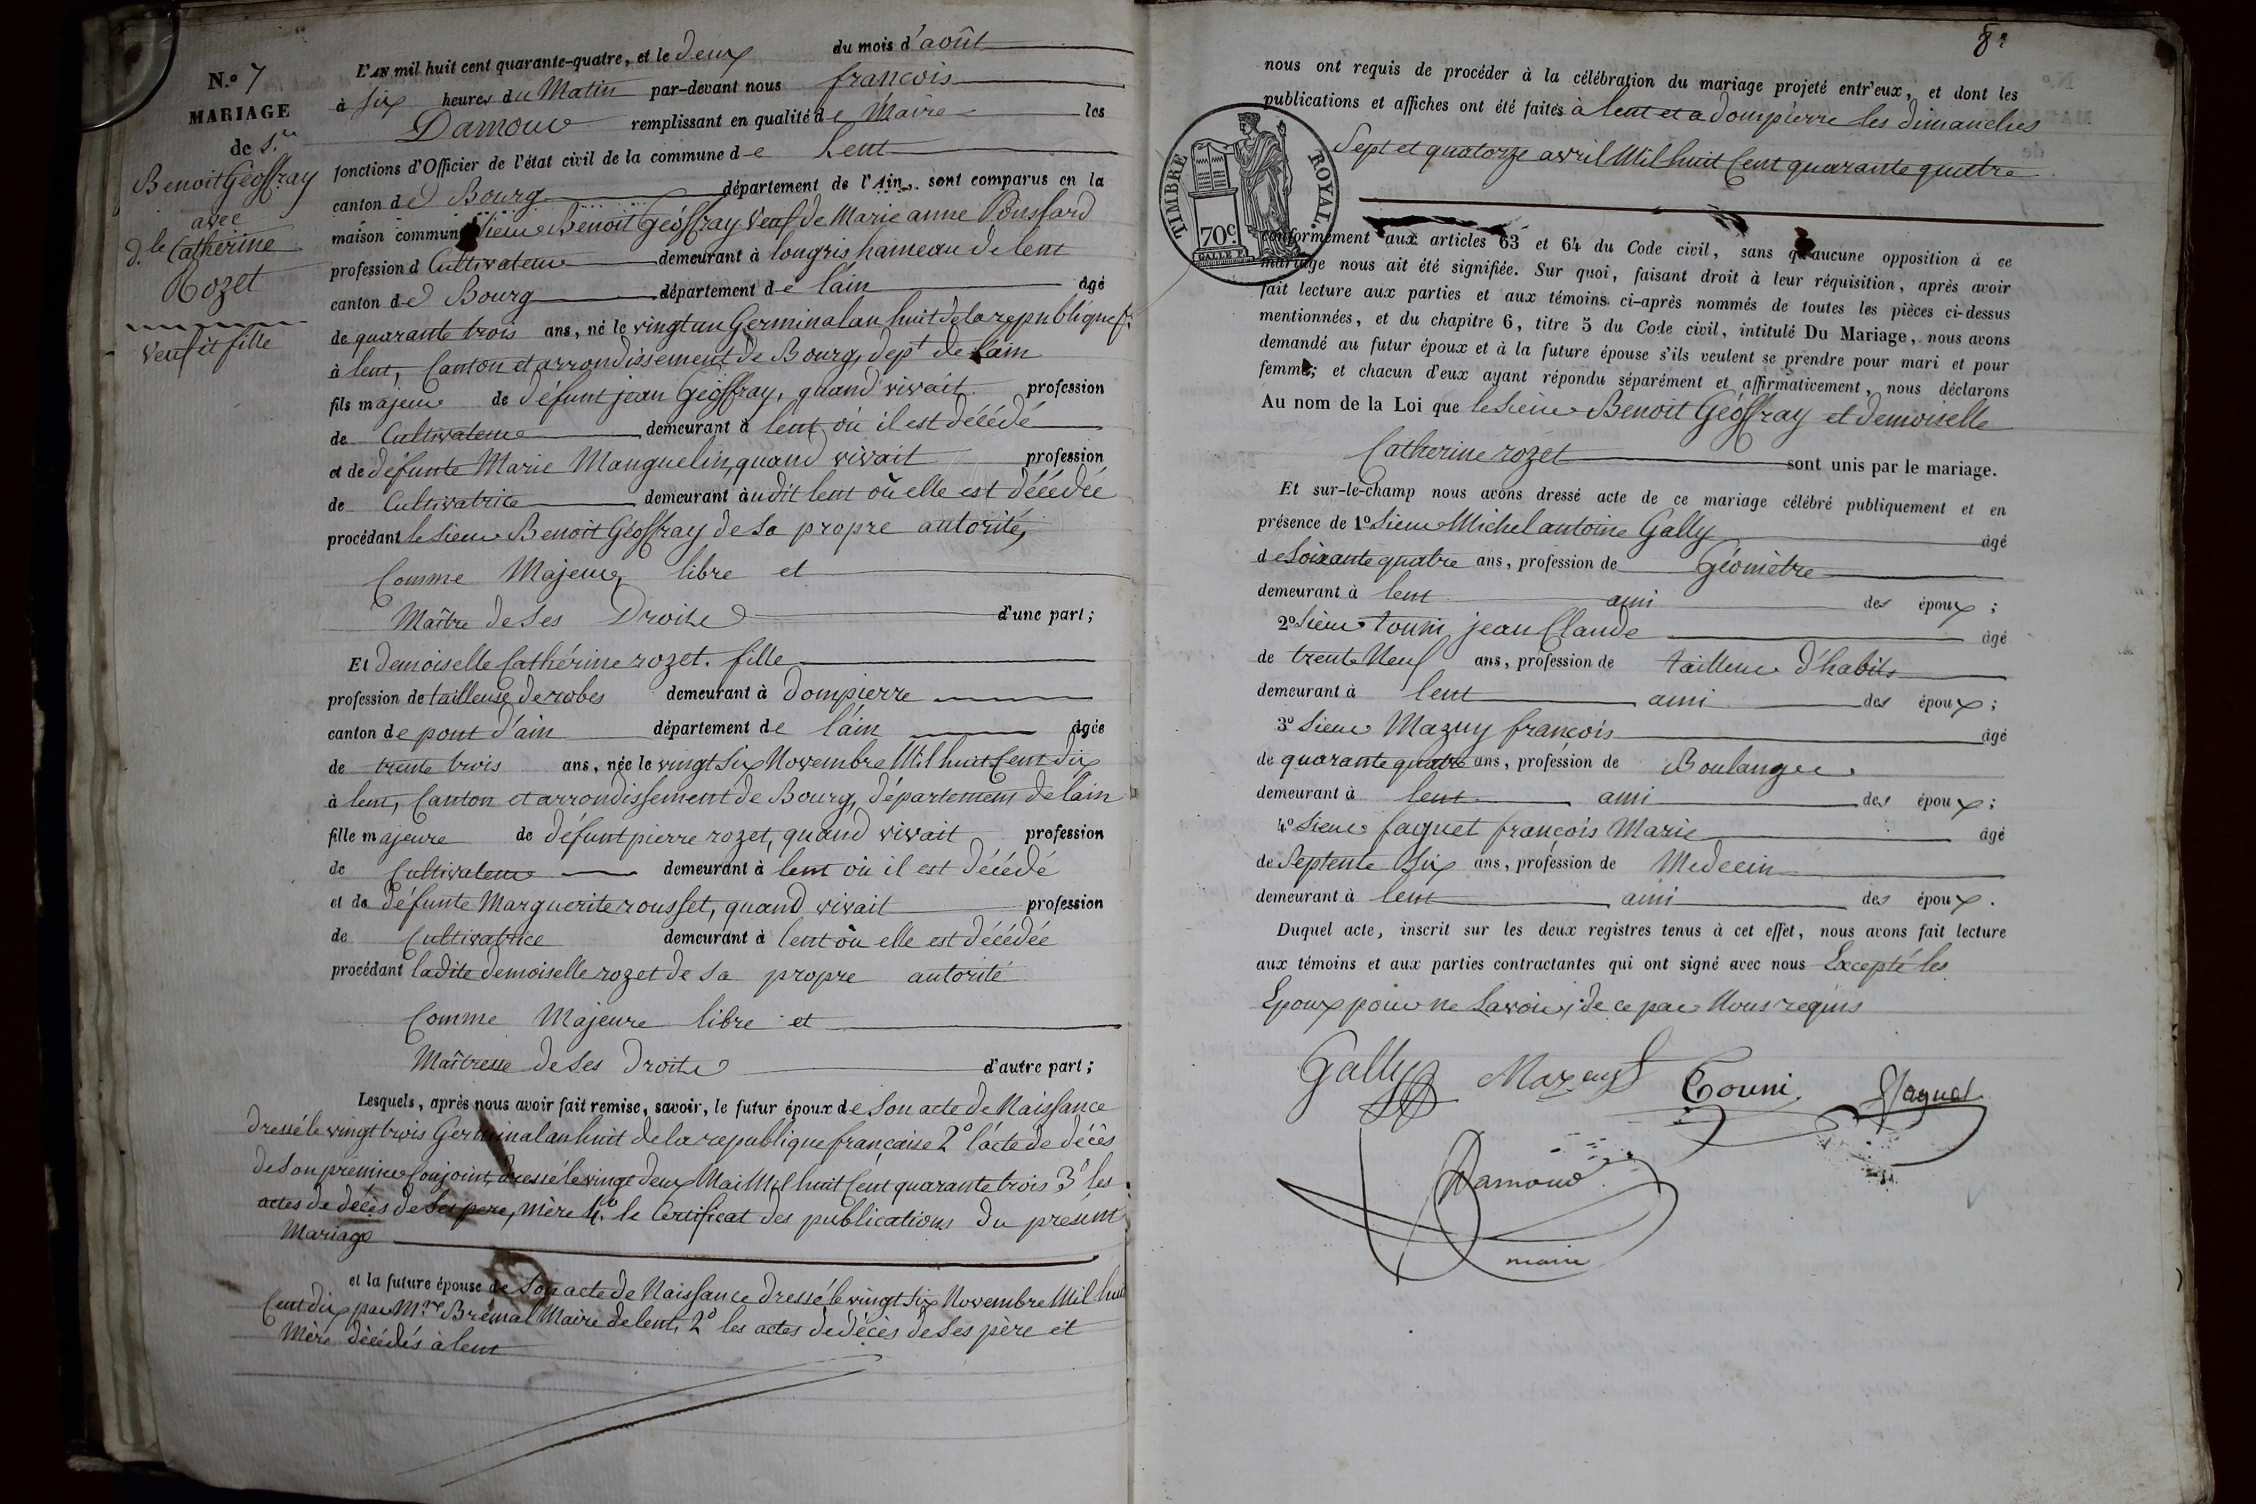 N.º 7
MARIAGE
de S.r
Benoit Géoffray
avec
d.le Catherine
Rozet
Veuf et fille
L'AN mil huit cent quarante-quatre, et le deux du mois d'août
à six heures du Matin par-devant nous françois
Damour remplissant en qualité de Maire les
fonctions d'Officier de l'état civil de la commune de Lent
canton de Bourg département de l'Ain, sont comparus en la
maison commune sieur Benoit Géoffray Veuf de Marie anne Poussard
profession d Cultivateur demeurant à longris hameau de lent
canton de Bourg département de l'ain âgé
de quarante trois ans, né le vingt un Germinal an huit de la republique f.
à lent, Canton et arrondissement de Bourg, dept de l'ain
fils majeur de défunt jean Géoffray, quand vivait profession
de Cultivateur demeurant à lent où il est décédé
et de défunte Marie Manguelin, quand vivait profession
de Cultivatrice demeurant àudit lent où elle est décédée
procédant le sieur Benoit Géoffray de sa propre autorité,
Comme Majeur, libre et
Maître de ses Droits d'une part ;
Et demoiselle Cathérine rozet. fille
profession de tailleuse de robes demeurant à Dompierre
canton de pont d'ain département de l'ain âgée
de trente trois ans, née le vingt six Novembre Mil huit Cent dix
à lent, Canton et arrondissement de Bourg, département de l'ain
fille majeure de défunt pierre rozet, quand vivait profession
de Cultivateur demeurant à lent où il est décédé
et de défunte Marguerite rousset, quand vivait profession
de Cultivatrice demeurant à lent où elle est décédée
procédant ladite demoiselle rozet de sa propre autorité
Comme Majeure libre et
Maîtresse de ses Droits d'autre part ;
Lesquels, après nous avoir fait remise, savoir, le futur époux de son acte de Naissance
dressé le vingt trois Germinal an huit de la republique française 2º l'acte de décès
de son premier Conjoint, dressé le vingt deux Mai Mil huit Cent quarante trois 3º les
actes de décès de ses pere, mère 4º le Certificat des publications du présent
Mariage
et la future épouse de son acte de Naissance dressé le vingt six Novembre Mil huit
Cent dix par Mr Brémal Maire de lent, 2º les actes de décès de ses père et
Mère décédés à lent
8
nous ont requis de procéder à la célébration du mariage projeté entr'eux, et dont les
publications et affiches ont été faites à lent et a Dompierre les dimanches
Sept et quatorze avril Mil huit Cent quarante quatre
TIMBRE ROYAL.
70c.
conformément aux articles 63 et 64 du Code civil, sans qu'aucune opposition à ce
mariage nous ait été signifiée. Sur quoi, faisant droit à leur réquisition, après avoir
fait lecture aux parties et aux témoins ci-après nommés de toutes les pièces ci-dessus
mentionnées, et du chapitre 6, titre 5 du Code civil, intitulé Du Mariage, nous avons
demandé au futur époux et à la future épouse s'ils veulent se prendre pour mari et pour
femme ; et chacun d'eux ayant répondu séparément et affirmativement, nous déclarons
Au nom de la Loi que le sieur Benoit Géoffray et demoiselle
Catherine rozet sont unis par le mariage.
Et sur-le-champ nous avons dressé acte de ce mariage célébré publiquement et en
présence de 1º Sieur Michel antoine Gally âgé
de Soixante quatre ans, profession de Géomètre
demeurant à lent ami des époux ;
2º Sieur touni jean Claude âgé
de trente Neuf ans, profession de tailleur d'habits
demeurant à lent ami des époux ;
3º Sieur Mazuy françois âgé
de quarante quatre ans, profession de Boulanger
demeurant à lent ami des époux ;
4º Sieur faguet françois Marie âgé
de Septente Six ans, profession de Medecin
demeurant à lent ami des époux.
Duquel acte, inscrit sur les deux registres tenus à cet effet, nous avons fait lecture
aux témoins et aux parties contractantes qui ont signé avec nous Excepté les
Epoux pour ne Savoir, de ce par Nous requis
Gally Mazuy Touni Faguet
Damour
maire